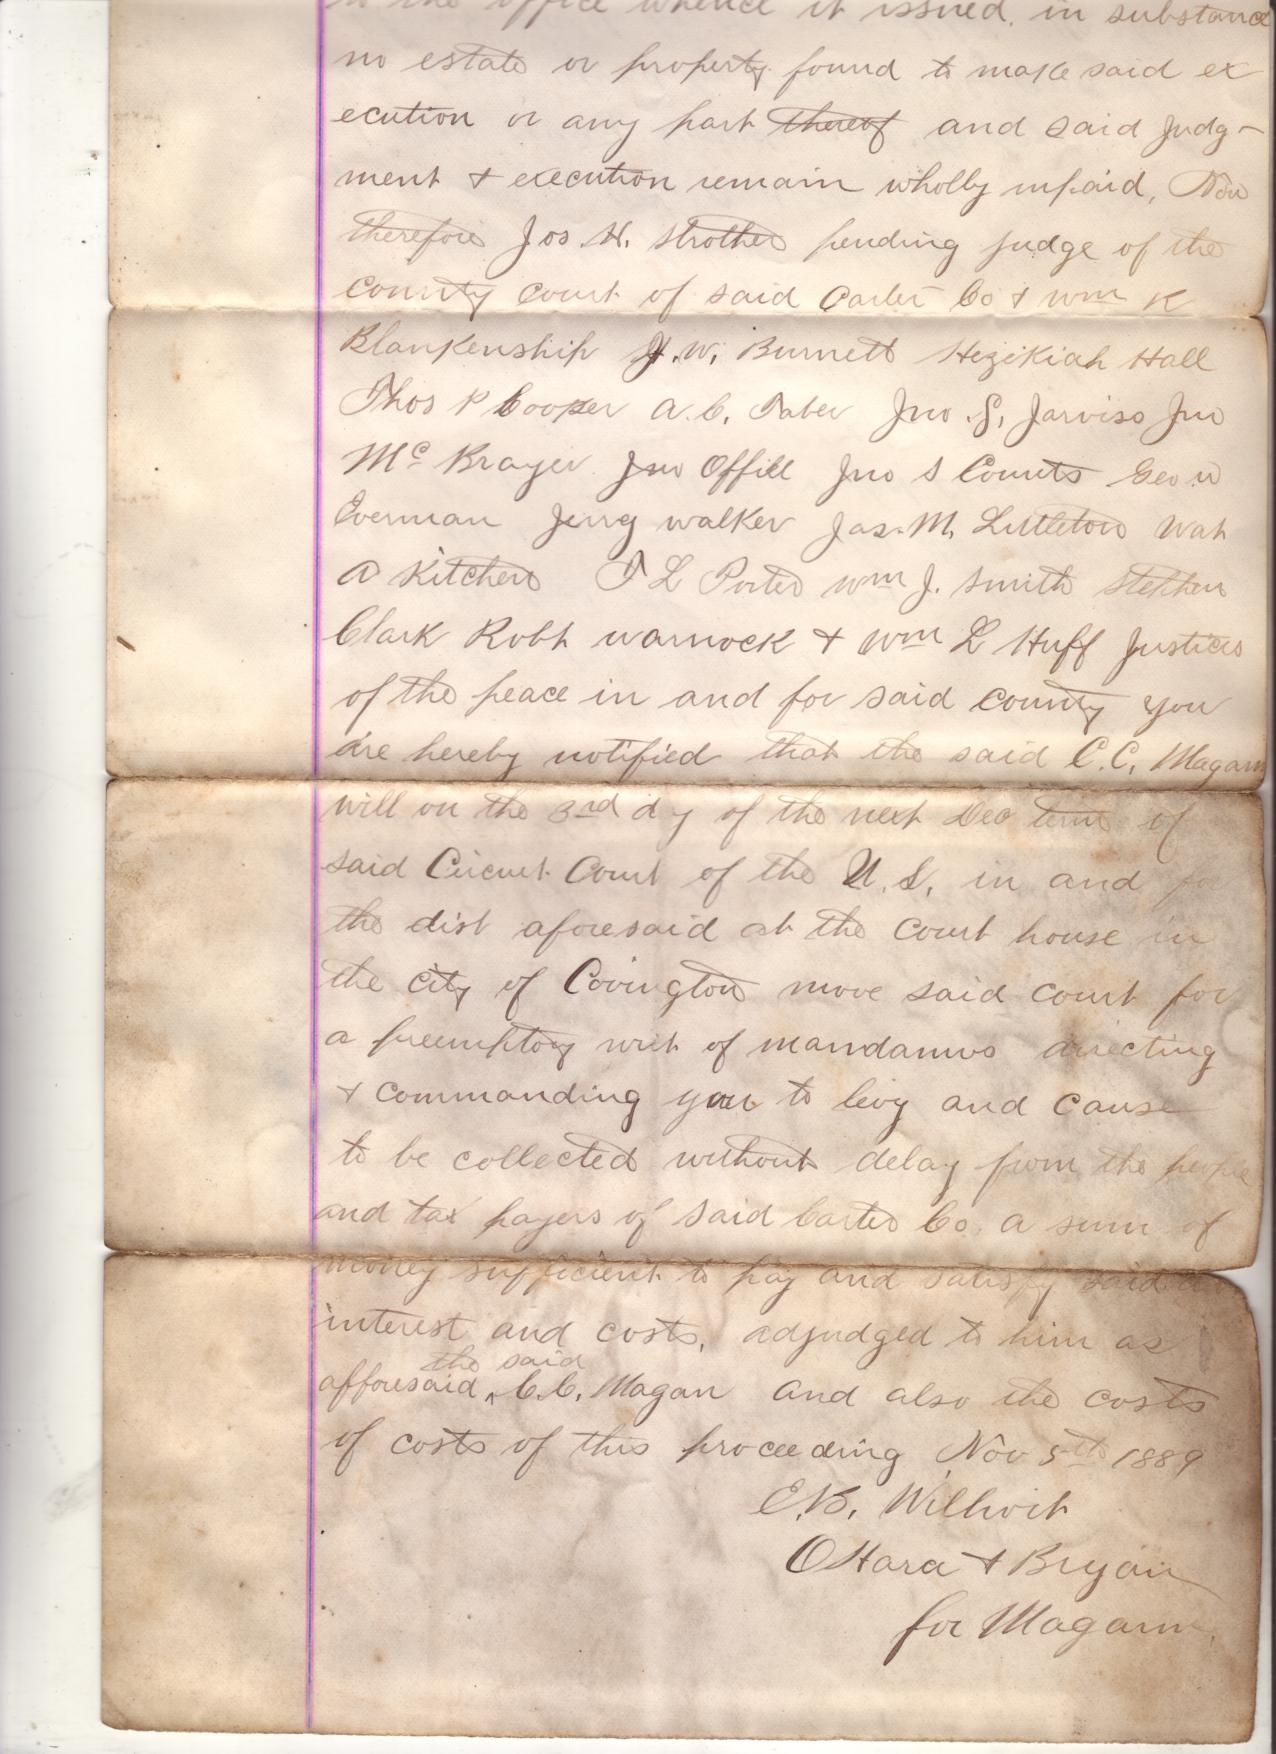 to the office whence it issued. in substance
no estate or property found to make said ex
ecution or any part thereof and said Judg-
ment & execution remain wholly unpaid, Now
therefore Jos. H. Strother pending judge of the
county court of said Carter Co & Wm K
Blankenship J. W. Burnett Hezekiah Hall
Thos P Cooper A. C. Taber Jno. S. Jarviso Jno
McBrayer Jno Offill Jno S Counts Geo W
Everman Jerry walker Jas. M. Littleton Wat
A Kitchen T L Porter Wm J. Smith Stephen
Clark Robt warnock & Wm L Huff Justices
of the peace in and for said county you
are hereby notified that the said C. C. Magann
will on the 3rd dy of the next Dec term of
said Circuit Court of the U. S. in and for
the dist aforesaid at the court house in
the city of Covington move said court for
a preemptory writ of mandamus directing
& commanding you to levy and cause
to be collected without delay from the people
and tax payers of said Carter Co. a sum of
money sufficient to pay and satisfy said
interest and costs, adjudged to him as
the said
afforesaid ^ C. C. Magan and also the costs
of costs of this proceeding Nov 5th 1889
E. B. Wilhoit
OHara & Bryan
for Magann.